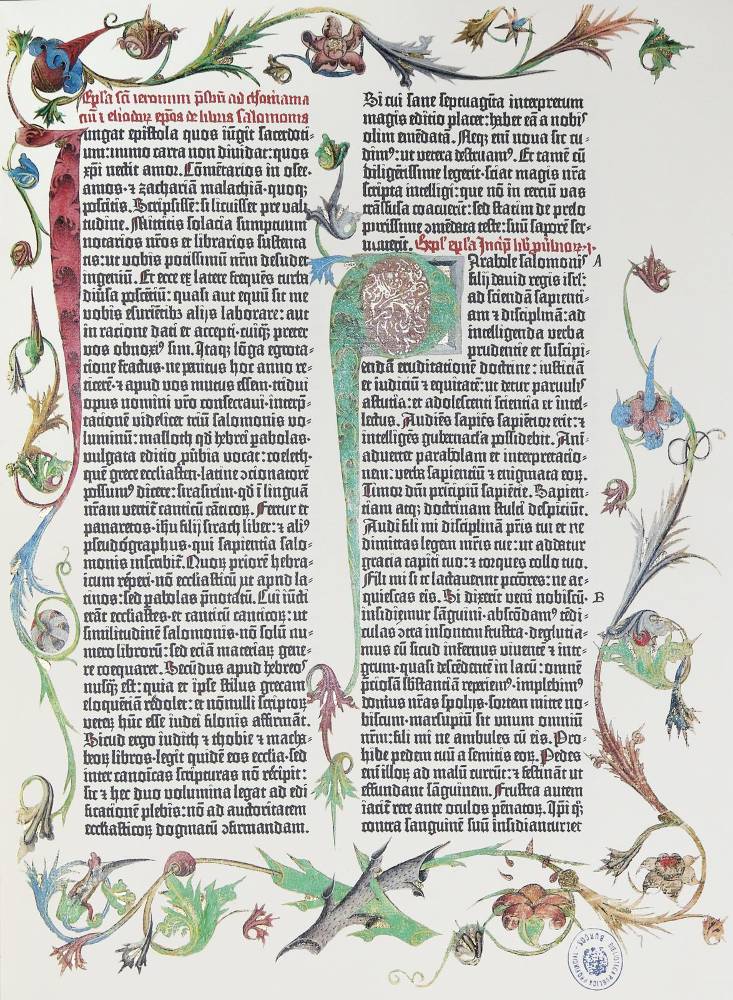 Epl'a sc̄i ieronimi p̄sbiteri ad chromacia
ciū ⁊ eliodorū ep̄os de libris salomonis
Iungat epistola quos iūgit sacerdoti-
um: immo carta non diuidat: quos
xp̄i nectit amor. Cōmētarios in osee-
amos- ⁊ zachariā malachiā- quoqꝫ
poscitis. Scripsissē: si licuisset pre vali-
tudine. Mittitis solacia sumptuum
notarios nr̄os et librarios sustenta-
tis: ut vobis potissimū nr̄m desudet
ingeniū. Et ecce eꝫ latere frequēs turba
diūsa poscētiū: quasi aut equū sit me
vobis esuriētibꝫ alijs laborare: aut
in racione dati et accepti- cuiqꝫ preter
vos obnoxiꝰ sim. Itaqꝫ lōga egrota-
tione fractus- ne penitus hoc anno re-
ticerē- ⁊ apud vos mutus essem- tridui
opus nomini vr̄o consecraui- interp̄-
tationē videlicet triū salomonis vo-
luminū: masloth qd̄ hebrei pabolas-
vulgata editio ꝓuerbia vocat: coeleth-
quē grece eccl'iasten- latine ↄcionatorē
possumꝰ dicere: sirasirim- qd̄ ī linguā
nr̄am vertit̄ canticū cāticoꝝ. Fertur et
panaretos- ihu filij sirach liber: ⁊ aliꝰ
pseudographus- qui sapientia salo-
monis inscribit̄. Quoꝝ priorē hebra-
icum reperi- nō eccl'iasticū ut apud la-
tinos: sed pabolas p̄notatū. Cui iūcti
erāt eccl'iastes- et canticū canticoꝝ: ut
similitudinē salomonis- nō solū nu-
mero libroꝝ: sed etiam materiaꝝ gene-
re coequaret. Secūdus apud hebreos
nusqꝫ est: quia et ipse stilus grecam
eloquētiā redolet: et nōnulli scriptoꝝ
veteꝝ hūc esse iudei filonis affirmāt.
Sicud ergo iudith ⁊ thobie ⁊ macha-
beoꝝ libros- legit quidē eos eccl'ia- sed
inter canoīcas scripturas nō recipit:
sic ⁊ hec duo volumina legat ad edi-
ficationē plebis: nō ad auctoritatem
eccl'iasticoꝝ dogmatū ↄfirmandam.
Si cui sane septuagīta interpretum
magis editio placet: habet eā a nobis
olim emēdatā. Neqꝫ enī noua sic cu-
dimꝰ: ut vetera destruamꝰ. Et tamē cū
diligētissime legerit- sciat magis nr̄a
scripta intelligi: que nō in terciū vas
trāsfusa coacuerīt: sed statim de prelo
purissime ↄmēdata teste: suū saporē ser-
uauerīt. Expl' epl'a Incipiūt lib' ꝓuerbioꝝ-
Parabole salomonis A
filij dauid regis isrl':
ad sciendā sapienti-
am ⁊ disciplinā: ad
intelligenda verba
prudentie et suscipi-
endā eruditationē doctrine: iusticiā
et iudiciū ⁊ equitatē: ut detur paruulis
astutia: et adolescenti scientia et intel-
lectus. Audiēs sapiēs sapiētior erit: ⁊
intelligēs gubernacl'a possidebit. Ani-
aduertet parabolam et interpretatio-
nem: verba sapientiū ⁊ enigmata eoꝝ.
Timor dn̄i principiū sapiētie. Sapien-
tiam atqꝫ doctrinam stulti despiciūt.
Audi fili mi disciplinā pr̄is tui et ne
dimittas legem mr̄is tue: ut addatur
gracia capiti tuo: ⁊ torques collo tuo.
Fili mi si te lactauerint pctōres: ne ac-
quiescas eis. Si dixerīt veni nobiscū- B
insidiemur sāguini- abscōdamꝰ tēdi-
culas ↄtra insontem frustra- deglutia-
mus eū sicud infernus viuentē ⁊ inte-
grum- quasi descēdentē in lacū: omnē
p̄ciosā sbstanciā reperiemꝰ- implebimꝰ
domus nr̄as spolijs- sortem mitte no-
biscum- marsupiū sit vnum omniū
nr̄m: fili mi ne ambules cū eis. Pro-
hibe pedem tuū a semitis eoꝝ. Pedes
enī illoꝝ ad malū currūt: ⁊ festināt ut
effundant sanguinem. Frustra autem
iacit̄ rete ante oculos pēnatoꝝ. Ip̄i qꝫ
contra sanguinē suū insidiantur: et
BIBLIOTECA PUBLICA Y PROVINCIAL - BURGOS